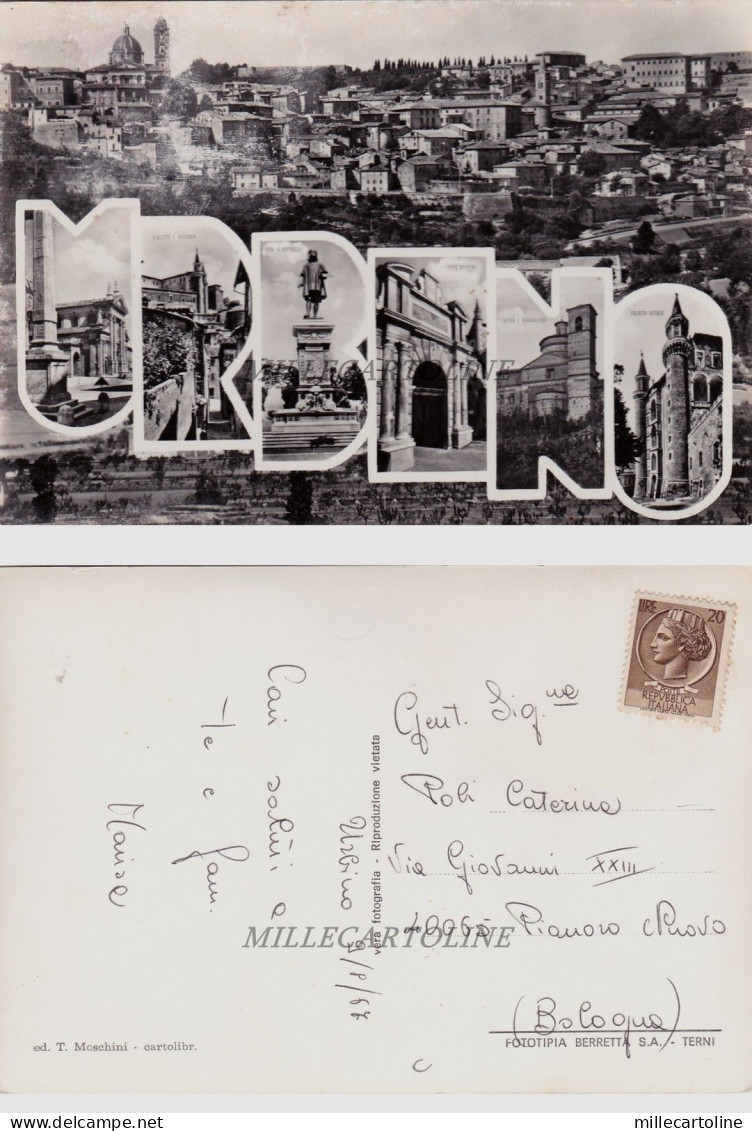 URBINO
MILLECARTOLINE
LIRE 20
POSTE
REPVBBLICA
ITALIANA
Cari saluti a
te e fam.
Marisa
Urbino 9/8/67
vera fotografia - Riproduzione vietata
Gent. Sig.na
Poli Caterina
Via Giovanni XXIII
40065 Pianoro Nuovo
(Bologna)
MILLECARTOLINE
ed. T. Moschini - cartolibr.
FOTOTIPIA BERRETTA S.A. - TERNI
millecartoline